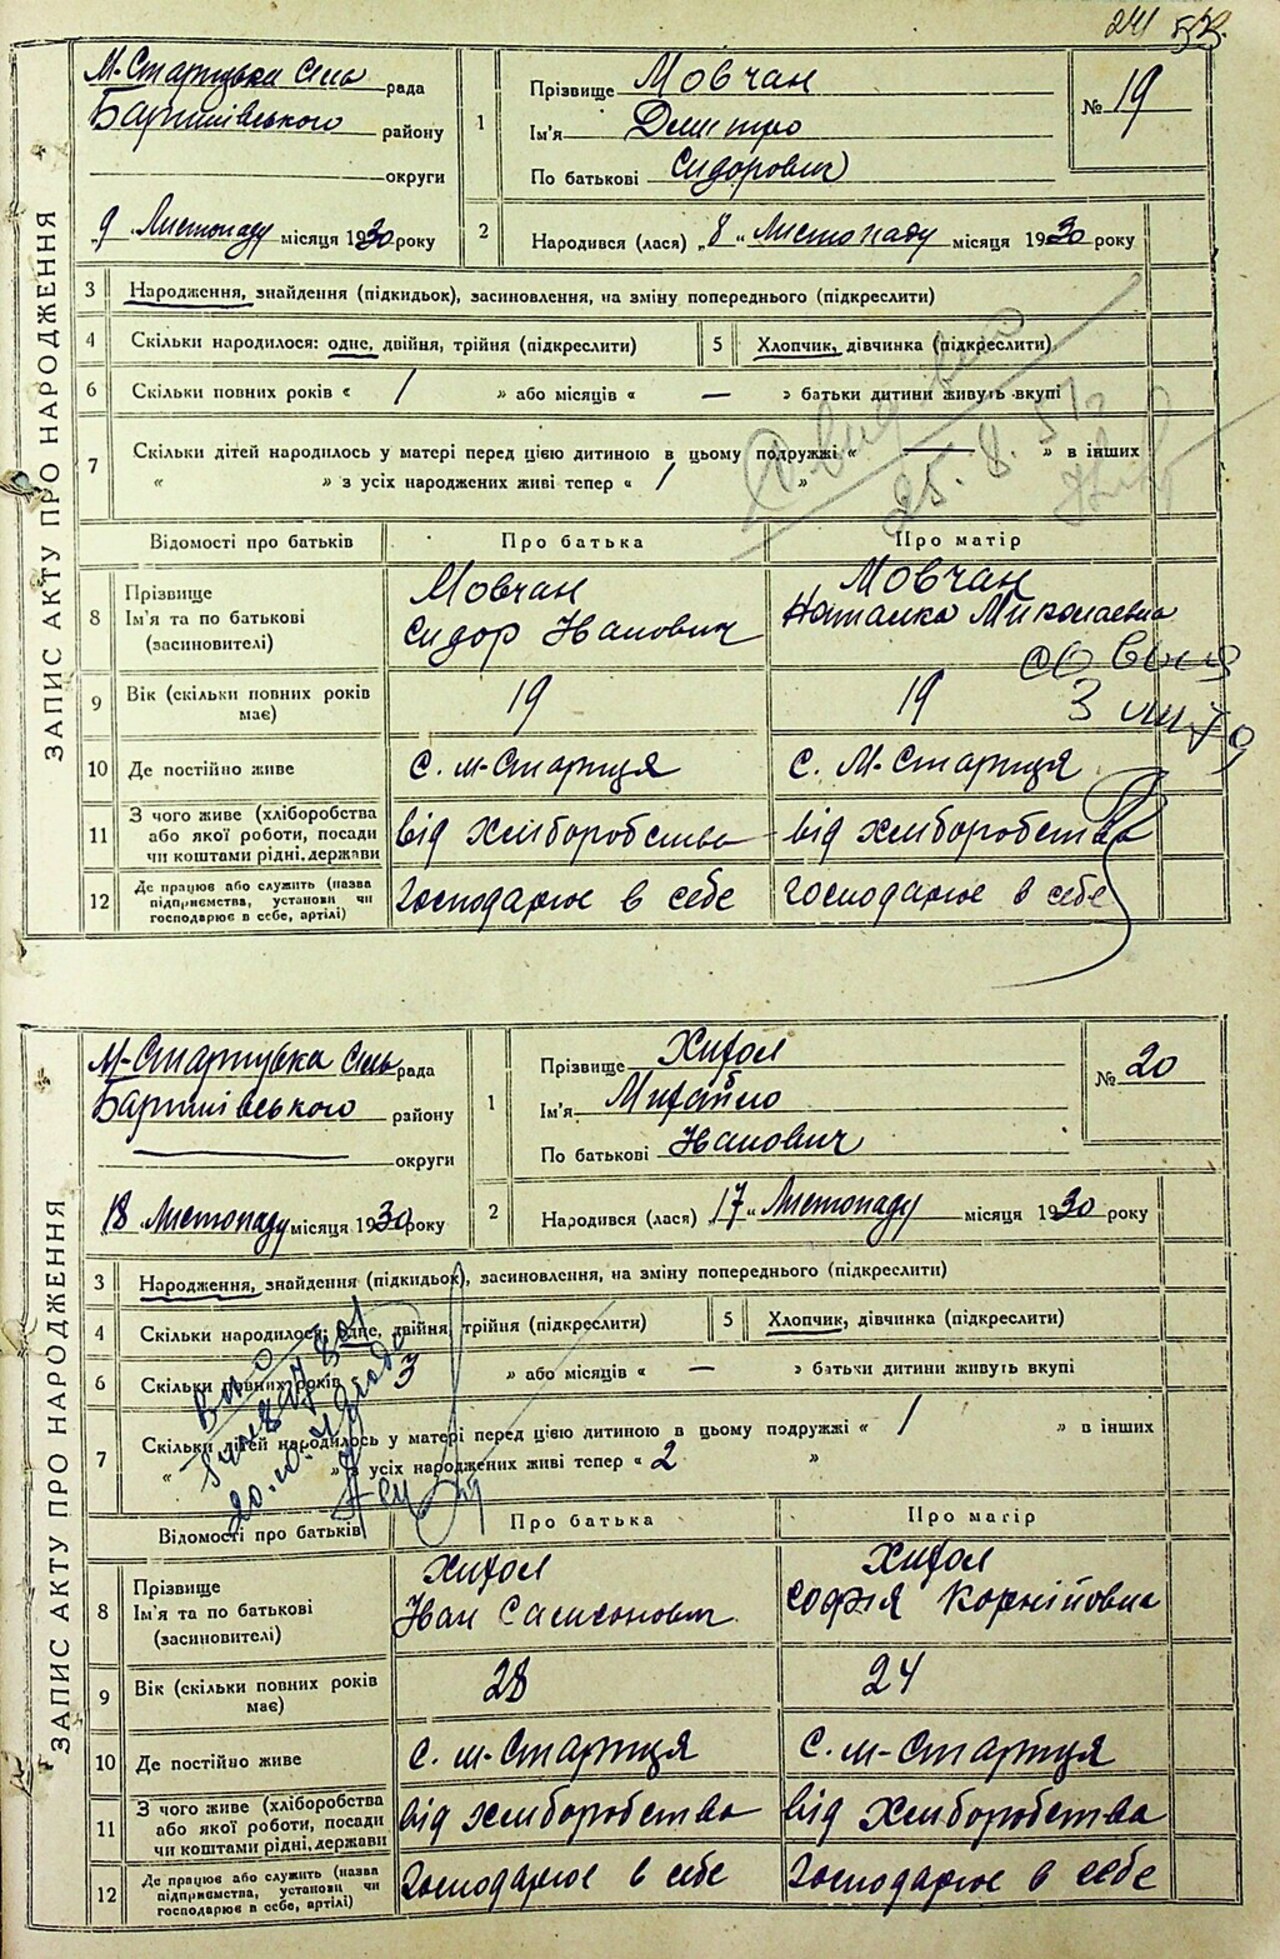 241
ЗАПИС АКТУ ПРО НАРОДЖЕННЯ
М-Старицька Сіль рада
Баришівського району
округи
9 Листопаду місяця 1930 року
1
Прізвище Мовчан
Ім'я Дмитро
По батькові Сидорович
№ 19
2 Народився (лася) „8“ Листопаду місяця 1930 року
3 Народження, знайдення (підкидьок), засиновлення, на зміну попереднього (підкреслити)
4 Скільки народилося: одне, двійня, трійня (підкреслити) 5 Хлопчик, дівчинка (підкреслити)
6 Скільки повних років « 1 » або місяців « — » батьки дитини живуть вкупі
7 Скільки дітей народилось у матері перед цією дитиною в цьому подружжі « — » в інших
« » з усіх народжених живі тепер « 1 »
25. 8. 51
Відомості про батьків Про батька Про матір
8 Прізвище Ім'я та по батькові (засиновителі)
Мовчан Сидор Іванович
Мовчан Наталка Миколаевна
9 Вік (скільки повних років має) 19 19
10 Де постійно живе с. М-Стариця с. М-Стариця
11 З чого живе (хліборобства або якої роботи, посади чи коштами рідні, держави від хліборобства від хліборобства
12 Де працює або служить (назва підприємства, установи чи господарює в себе, артілі) Господарює в себе Господарює в себе
ЗАПИС АКТУ ПРО НАРОДЖЕННЯ
М-Старицька Сіль рада
Баришівського району
округи
18 Листопаду місяця 1930 року
1
Прізвище
Ім'я Михайло
По батькові Іванович
№ 20
2 Народився (лася) „17“ Листопаду місяця 1930 року
3 Народження, знайдення (підкидьок), засиновлення, на зміну попереднього (підкреслити)
4 Скільки народилося: одне, двійня, трійня (підкреслити) 5 Хлопчик, дівчинка (підкреслити)
6 Скільки повних років 3 » або місяців « — » батьки дитини живуть вкупі
7 Скільки дітей народилось у матері перед цією дитиною в цьому подружжі « 1 » в інших
« » з усіх народжених живі тепер « 2 »
Відомості про батьків Про батька Про матір
8 Прізвище Ім'я та по батькові (засиновителі)
Іван Самсонович
Софія Корнійовна
9 Вік (скільки повних років має) 28 24
10 Де постійно живе с. М-Стариця с. М-Стариця
11 З чого живе (хліборобства або якої роботи, посади чи коштами рідні, держави від хліборобства від хліборобства
12 Де працює або служить (назва підприємства, установи чи господарює в себе, артілі) Господарює в себе Господарює в себе